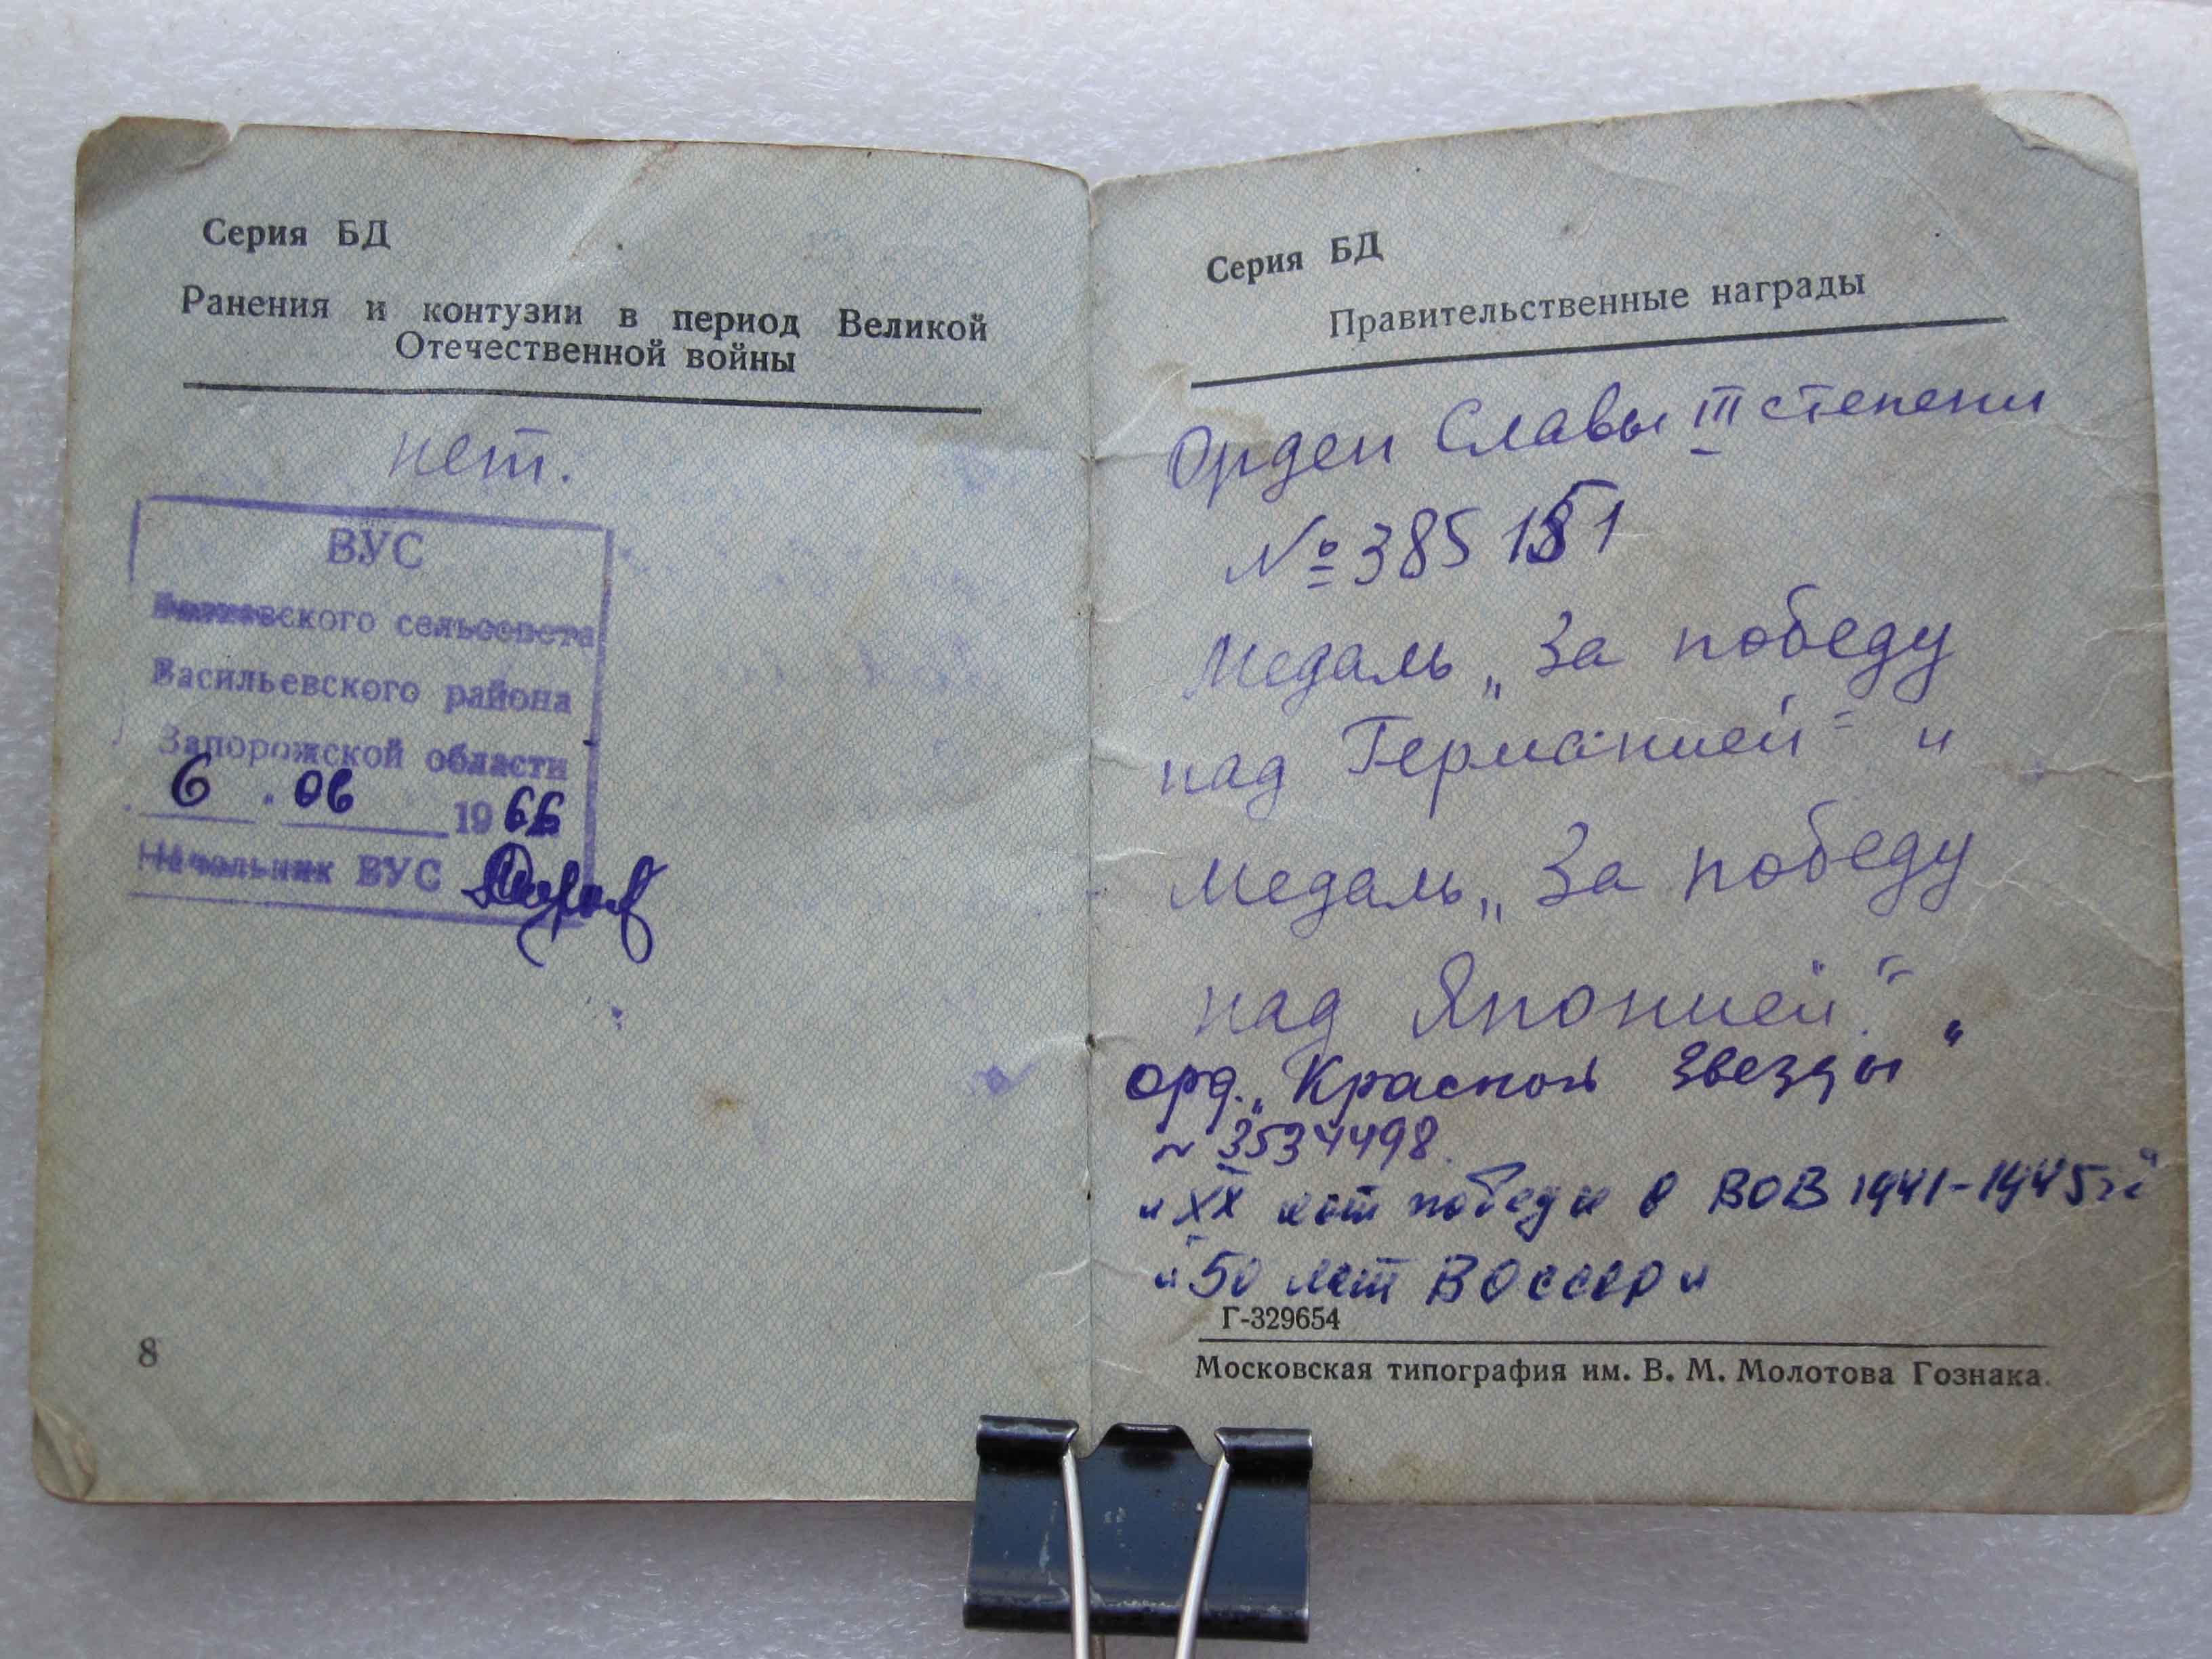 Серия БД
Ранения и контузии в период Великой
Отечественной войны
нет.
ВУС
сельсовета
Васильевского района
Запорожской области
6 . 06 1966
Начальник ВУС
8
Серия БД
Правительственные награды
Орден Славы III степени
№ 385151
Медаль „За победу
над Германией"
Медаль „За победу
над Японией."
орд. „Красной Звезды"
№ 3534498.
"XX лет победы в ВОВ 1941-1945гг"
"50 лет ВОСССР"
Г-329654
Московская типография им. В. М. Молотова Гознака.